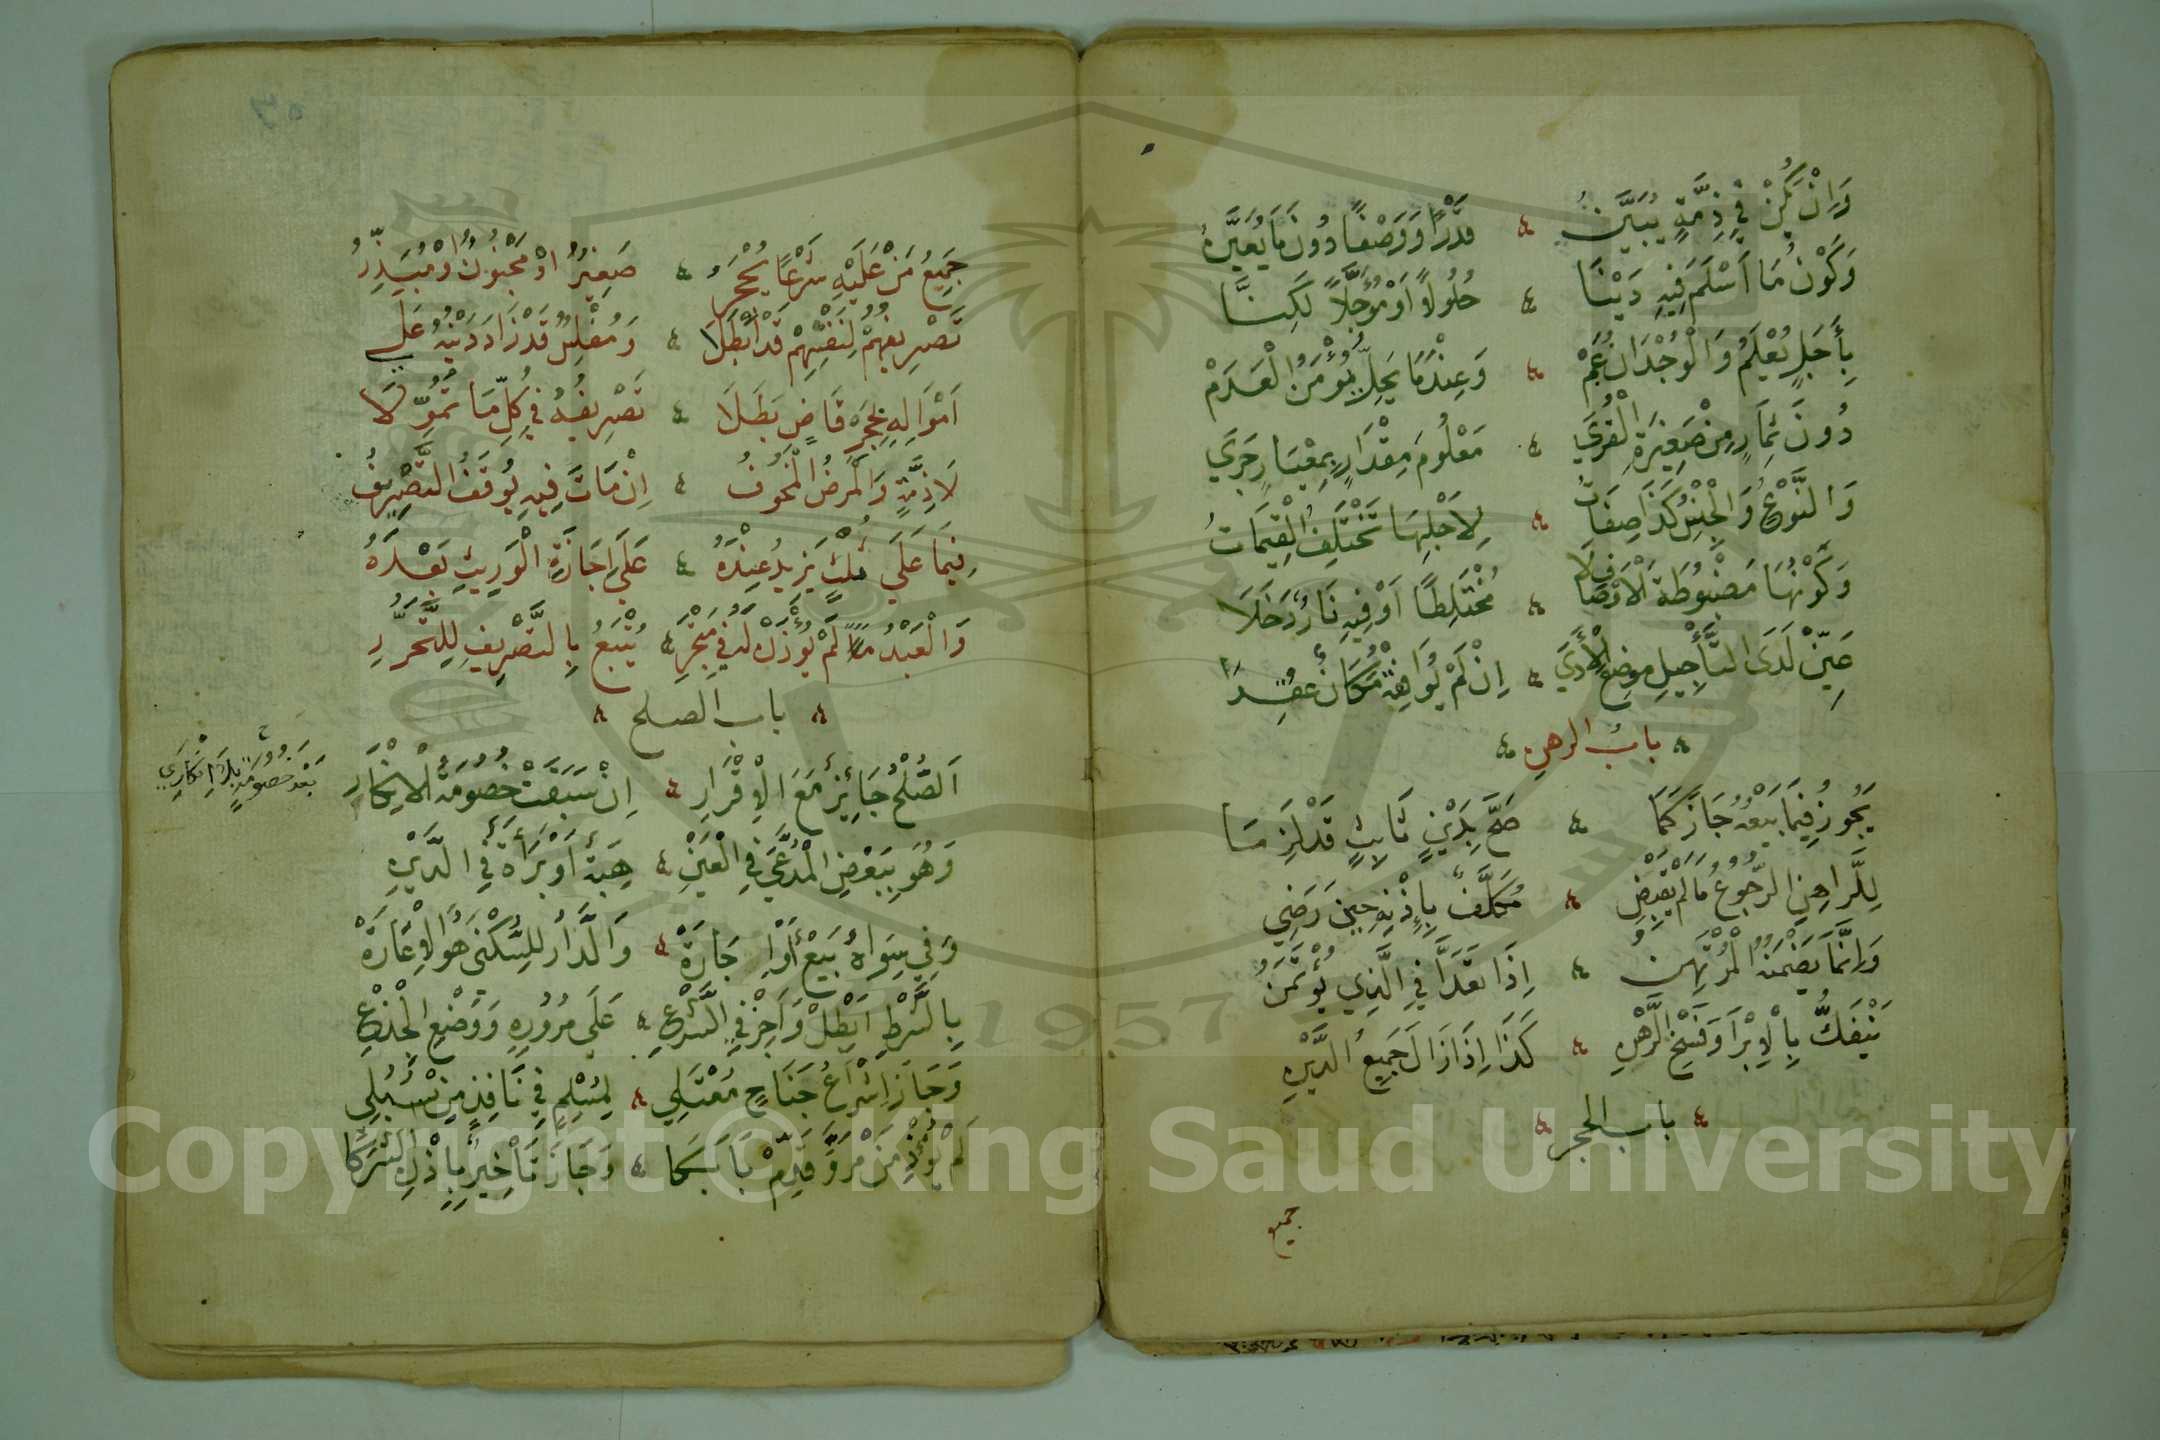 وَإِنْ يَكُنْ فِي ذِمَّةٍ يُبَيَّنُ ؞ قَدْرًا وَوَصْفًا دُونَ مَا يُعَيَّنُ
وَكَوْنُ مَا أَسْلَمَ فِيهِ دَيْنَا ؞ حُلُولًا أَوْ مُؤَجَّلًا لَكِنَّا
بِأَجَلٍ يُعْلَمُ وَالْوُجْدَانُ عَمْ ؞ وَعِنْدَ مَا يَحِلُّ يُؤْمَنُ الْعَدَمْ
دُونَ ثِمَارٍ مِنْ صَغِيرَةِ الْقُرَي ؞ مَعْلُومَ مِقْدَارٍ بِمِعْيَارٍ جَرَي
وَالنَّوْعُ وَالْجِنْسُ كَذَا صِفَاتُ ؞ لِاَجْلِهَا تَخْتَلِفُ الْقِيمَاتُ
وَكَوْنُهَا مَضْبُوطَةَ الْأَوْصَافِ لَا ؞ مُخْتَلِطًا أَوْ فِيهِ نَارٌ دَخَلَا
عَيِّنْ لَدَى التَّأْجِيلِ مَوضِعَ الْأَدَي ؞ إِنْ لَمْ يُوَافِقْهُ مَكَانٌ عُقِدَا
؞ بابُ الرهنِ ؞
يَجُوزُ فِيمَا بَيْعُهُ جَازَ كَمَا ؞ صَحَّ بِدَيْنٍ ثَابِتٍ قَدْ لَزِمَا
لِلرَّاهِنِ الرُّجُوعُ مَا لَمْ يَقْبِضِ ؞ مُكَلَّفٌ بِإِذْنِهِ حِينَ رَضِي
وَإِنَّمَا يَضْمَنُهُ الْمُرْتَهِنُ ؞ إِذَا تَعَدَّا فِي الَّذِي يُؤْتَمَنُ
يَنْفَكُّ بِالْاِبْرَا وَفَسْخِ الرَّهْنِ ؞ كَذَا إِذَا زَالَ جَمِيعُ الدَّيْنِ
؞ باب الحجر ؞
جميع
جَمِيعُ مَنْ عَلَيْهِ شَرْعًا يُحْجَرُ ؞ صَغِيرٌ اوْ مَجْنُونٌ أوْ مُبَذِّرُ
تَصْرِيفُهُمْ لِنَفْسِهِمْ قَدْ أَبْطِلَا ؞ وَمُفْلِسٌ قَدْ زَادَ دَيْنُهُ عَلَي
اَمْوَالِهِ بِحَجْرِ قَاضٍ بَطَلَا ؞ تَصْرِيفُهُ فِي كُلِّ مَا تَمَوَّلَا
لَا ذِمَّةٍ وَالْمَرَضُ الْمَخُوفُ ؞ إِنْ مَاتَ فِيهِ يُوقَفُ التَّصْرِيفُ
فِيمَا عَلَي ثُلْثٍ يَزِيدُ عِنْدَهُ ؞ عَلَي إِجَازَةِ الْوَرِيثِ بَعْدَهُ
وَالْعَبْدُ لَمْ يُؤْذَنْ لَهُ فِي مَتْجَرِ ؞ يُتْبَعُ بِالتَّصْرِيفِ لِلتَّحَرُّرِ
؞ باب الصلح ؞
اَلصُّلْحُ جَائِزٌ مَعَ الْاِقْرَارِ ؞ إِنْ سَبَقَتْ خُصُومَةُ الْاِنْكَارِ
بَعْدَ خُصُومَةٍ بِلَا إِنْكَارِي
وَهُوَ بِبَعْضِ الْمُدَّعَي فِي الْعَيْنِ ؞ هِبَةٌ أَوْ بَرَاءَةٌ فِي الدَّيْنِ
وَفِي سِوَاهُ بَيْعٌ أَوْ إِجَارَةْ ؞ وَالدَّارُ لِلسُّكْنَي هُوَ الْاِعَارَةْ
بِالشَّرْطِ اَبْطِلْ وَأَجِزْ فِي الشَّرْعِ ؞ عَلَي مُرُورِهِ وَوَضْعِ الْجِذْعِ
وَجَازَ إِشْرَاعُ جَنَاحٍ مُعْتَلِي ؞ لِمُسْلِمٍ فِي نَافِذٍ مِنْ سُبُلِي
لَمْ يُؤْذِ مَنْ مَرَّ وَقَدِّمْ بَابَكَا ؞ وَجَازَ تَأْخِيرٌ بِإِذْنِ الشُّرَكَا
1957
Copyright © King Saud University